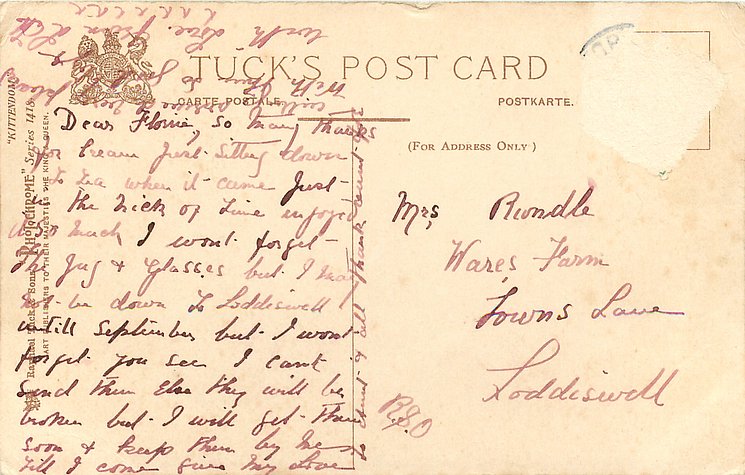 TUCK'S POST CARD
CARTE POSTALE.
POSTKARTE.
(FOR ADDRESS ONLY)
"KITTENDOM"
Raphael Tuck & Sons' "RHOTOCHROME" Series 1418.
ART PUBLISHERS TO THEIR MAJESTIES THE KING & QUEEN.
Dear Florrie, so many thanks
for cream Just sitting down
to tea when it came Just
in the nick of time enjoyed
so much I wont forget
the Jug & Glasses but I may
not be down to Loddiswell
untill September but I wont
forget you see I cant
send them else they will be
broken but I will get them
soon & keep them by me
till I come give my love
to Aunt & all thank Aunt
with love from
Mrs, Rundle
Wares Farm
Towns Lane
Loddiswell
R.S.O